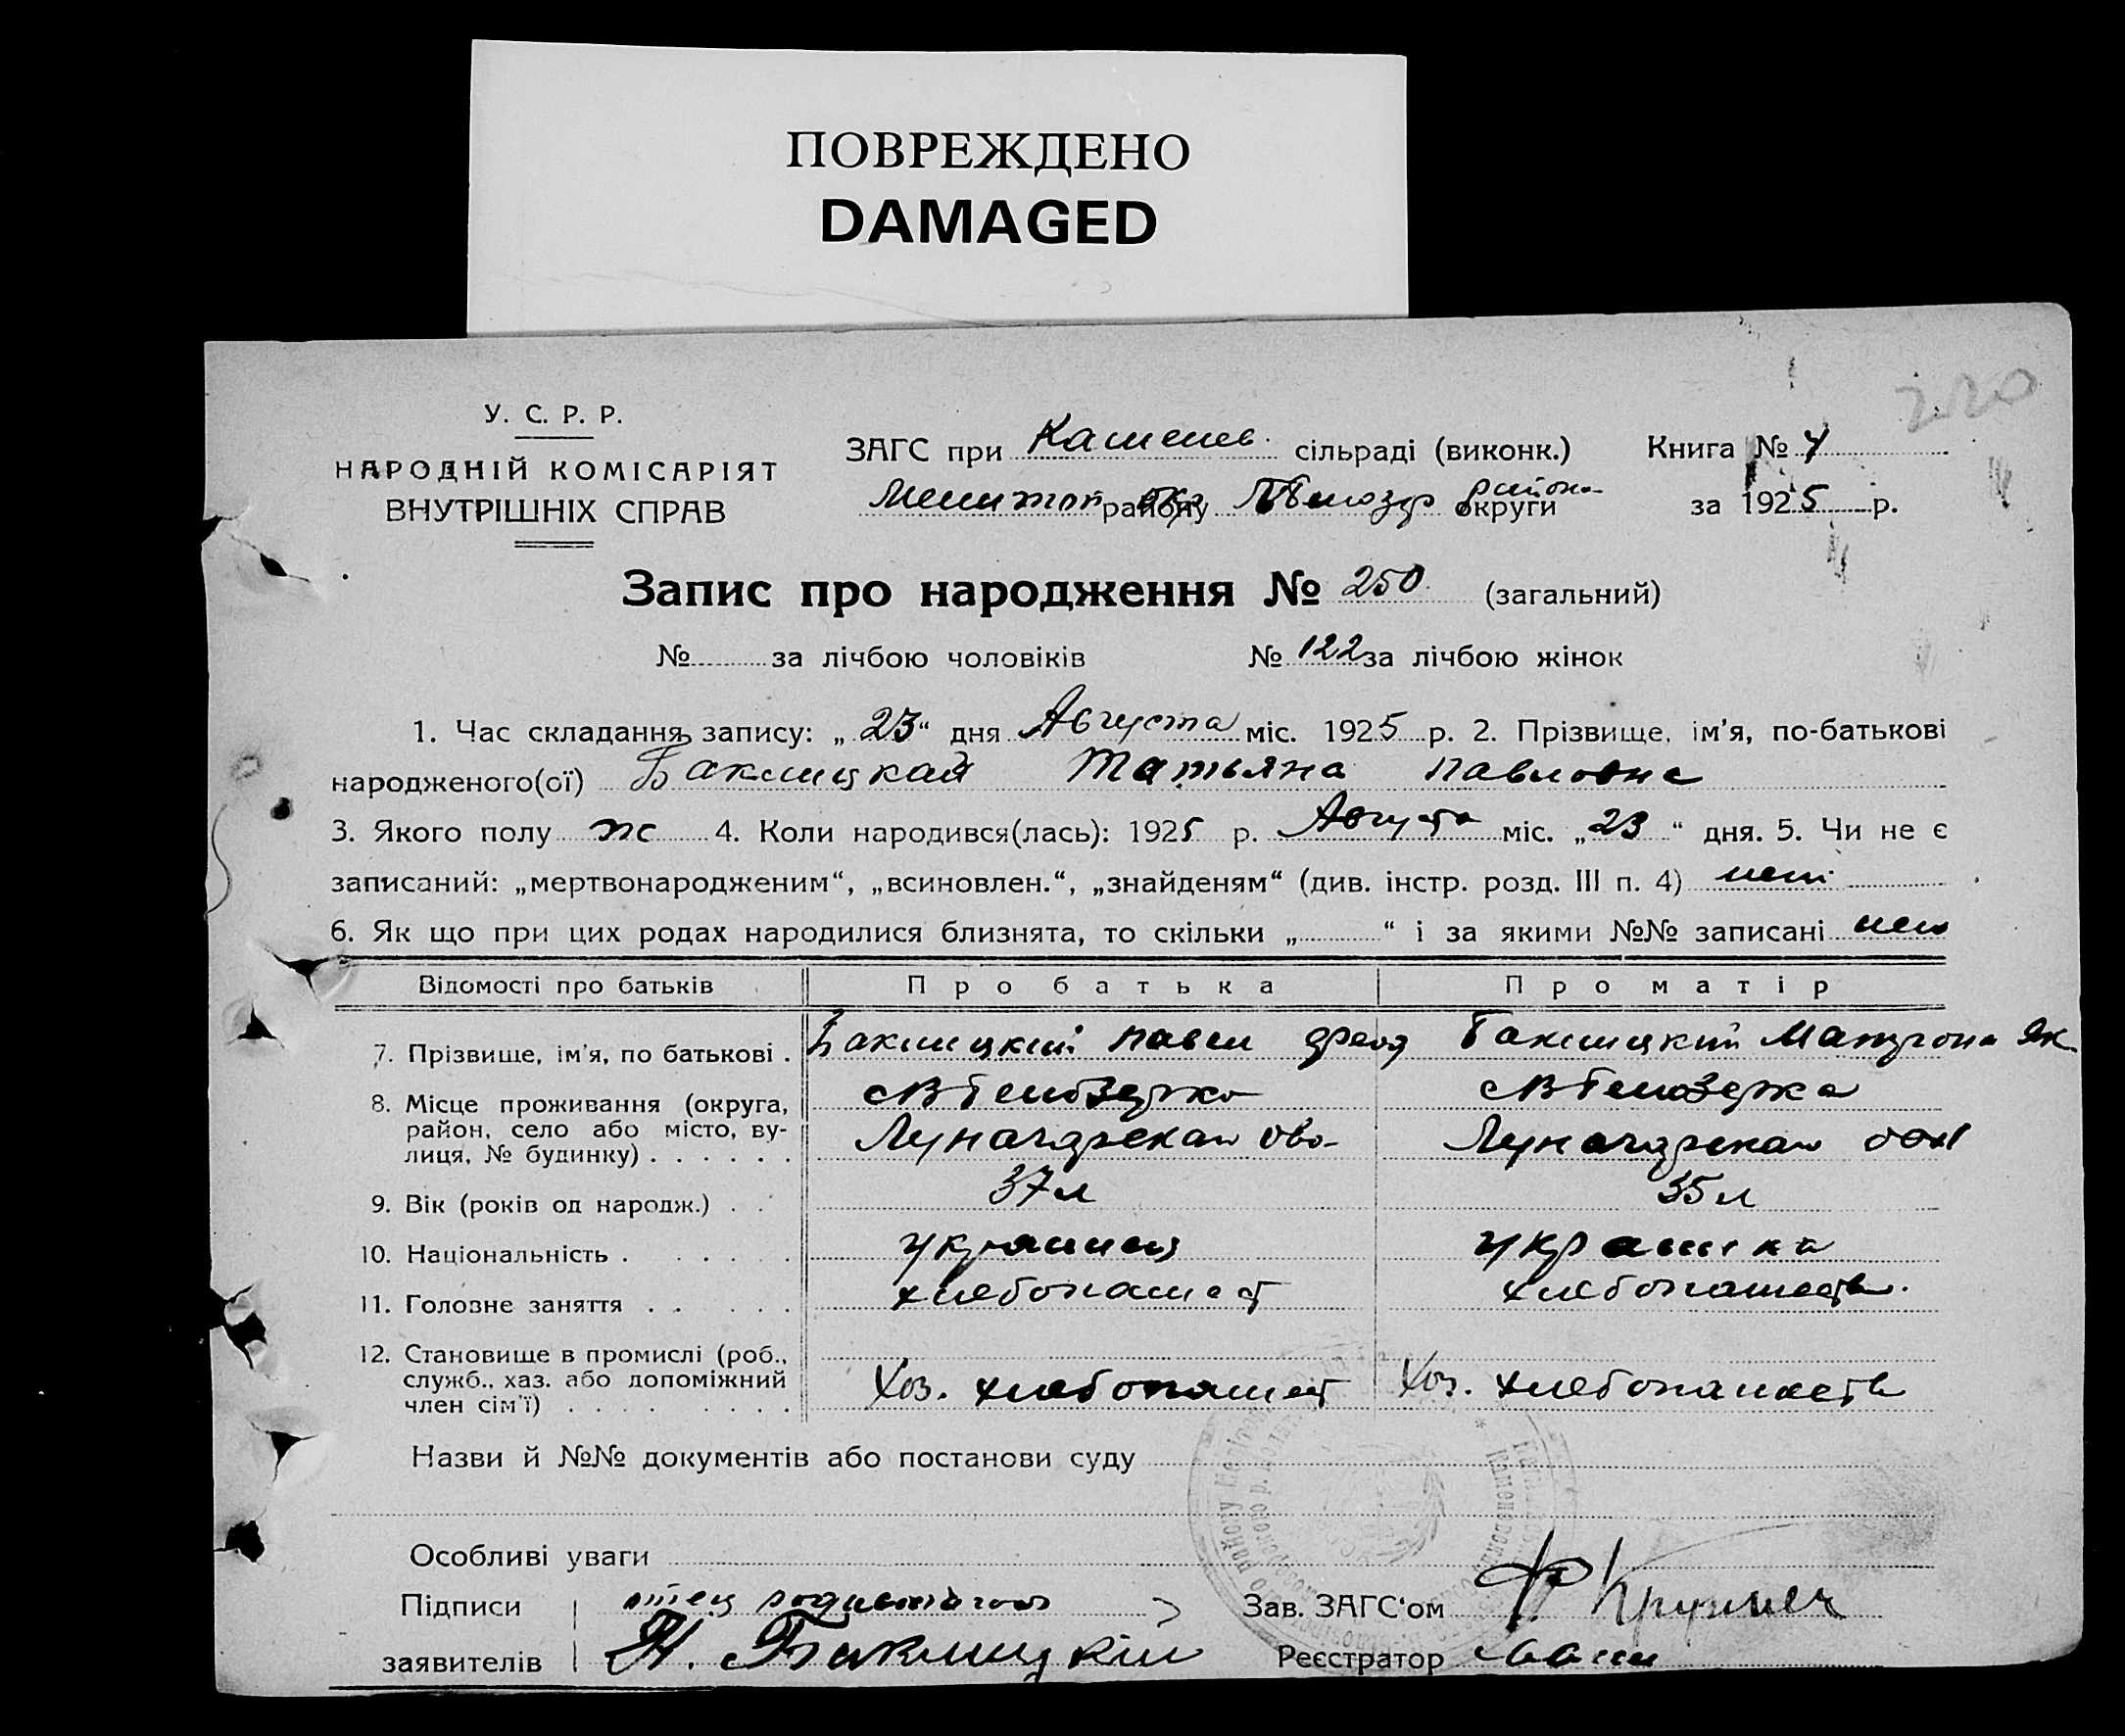 ПОВРЕЖДЕНО
DAMAGED
220
У. С. Р. Р.
НАРОДНІЙ КОМІСАРІЯТ
ВНУТРІШНІХ СПРАВ
ЗАГС при Каменев. сільраді (виконк.)
Книга № 4
Мелитоп району округи района
за 1925 р.
Запис про народження № 250 (загальний)
№ за лічбою чоловіків № 122 за лічбою жінок
1. Час складання запису: „23“ дня Августа міс. 1925 р. 2. Прізвище, ім'я, по-батькові
народженого(ої) Баклицкая Татьяна Павловна
3. Якого полу ж 4. Коли народився(лась): 1925 р. Августа міс. „23“ дня. 5. Чи не є
записаний: „мертвонародженим“, „всиновлен.“, „знайденям“ (див. інстр. розд. III п. 4) нет
6. Як що при цих родах народилися близнята, то скільки „ “ і за якими №№ записані нет
Відомості про батьків Про батька Про матір
7. Прізвище, ім'я, по батькові . Баклицкий Павел Баклицкий Матрона Як.
8. Місце проживання (округа,
район, село або місто, ву-
лиця, № будинку) . . . . . .
Белозерка Белозерка
Луначарская Луначарская
9. Вік (років од народж.) . . 37 л 35 л
10. Національність . . . . . . украинец украинка
11. Головне заняття . . . . . . хлебопашест хлебопашеств.
12. Становище в промислі (роб.,
служб., хаз. або допоміжний
член сім'ї) . . . . . . . . .
Хоз. хлебопашест Хоз. хлебопашеств
Назви й №№ документів або постанови суду
Особливі уваги
Підписи отец Зав. ЗАГС'ом
заявителів П. Баклицкій Реєстратор